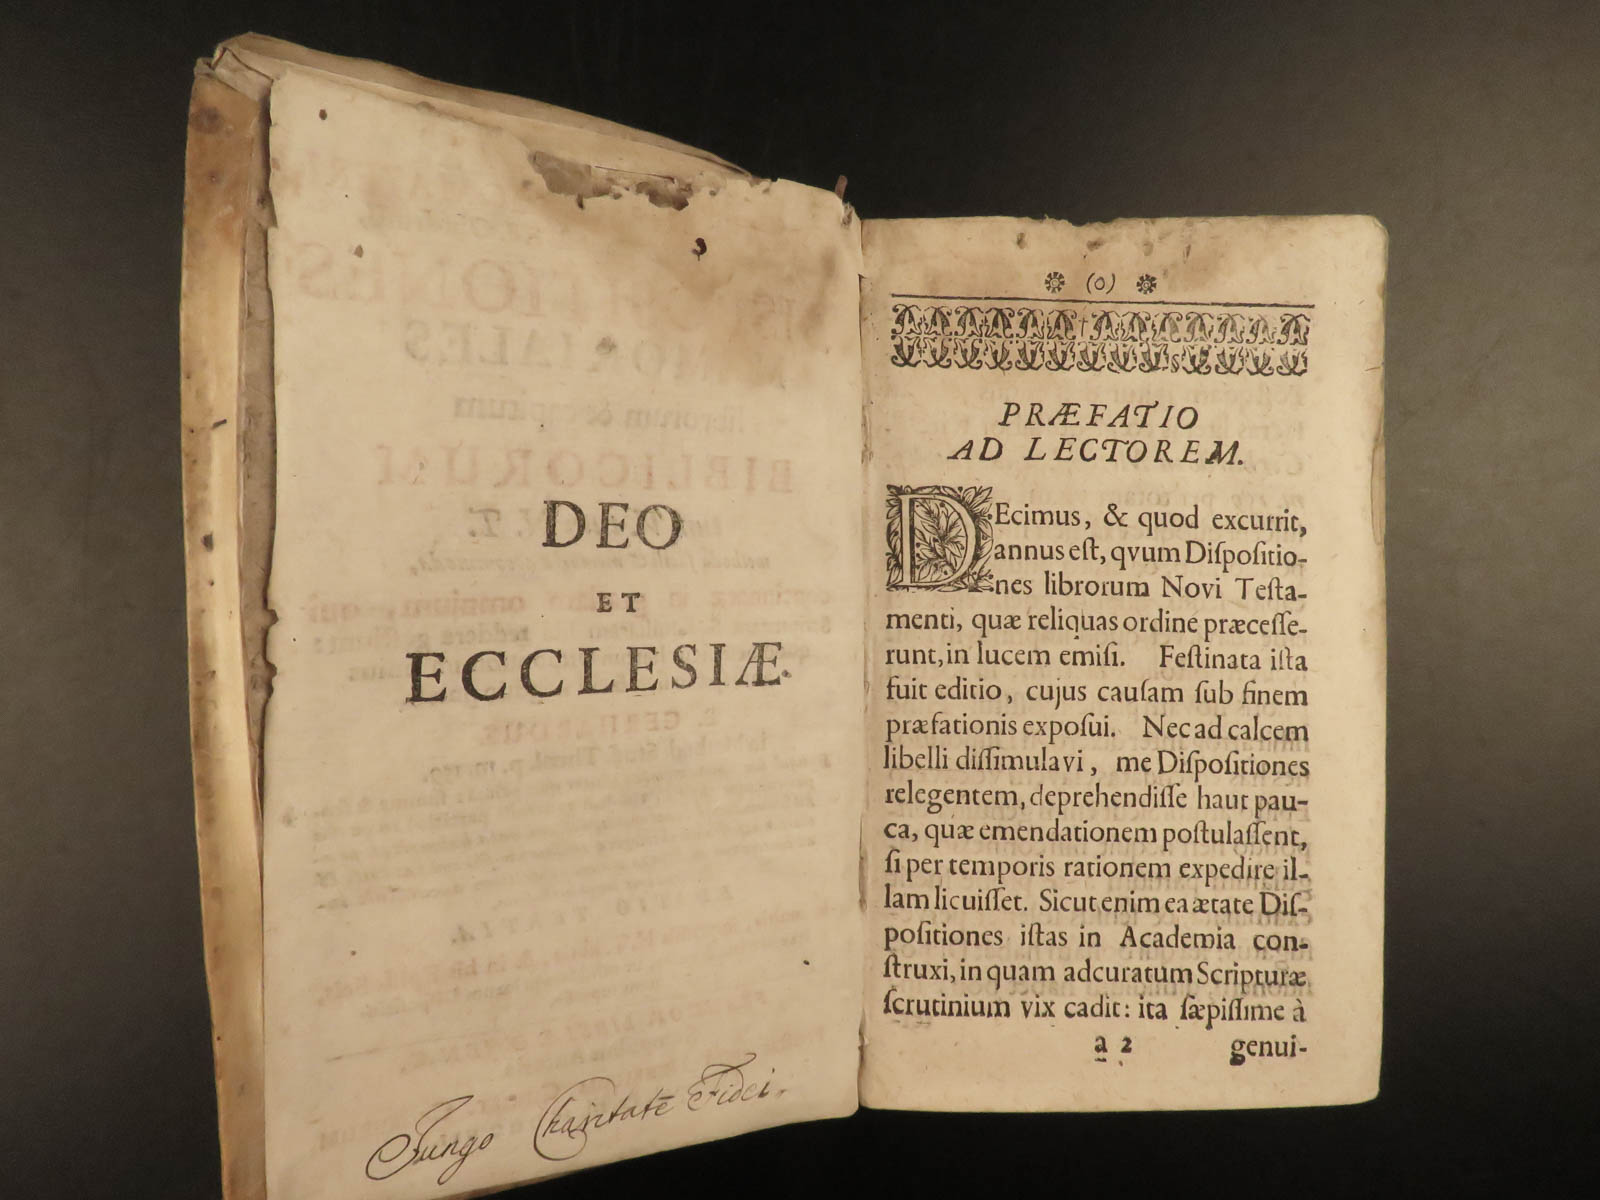 DEO
ET
ECCLESIÆ.
Jungo Charitatē Fidei.
(0)
PRÆFATIO
AD LECTOREM.
DEcimus, & quod excurrit,
annus eſt, qvum Diſpoſitio-
nes librorum Novi Teſta-
menti, quæ reliquas ordine præceſſe-
runt, in lucem emiſi. Feſtinata iſta
fuit editio, cujus cauſam ſub finem
præfationis expoſui. Nec ad calcem
libelli diſſimulavi, me Diſpoſitiones
relegentem, deprehendiſſe haut pau-
ca, quæ emendationem poſtulaſſent,
ſi per temporis rationem expedire il-
lam licuiſſet. Sicut enim ea ætate Diſ-
poſitiones iſtas in Academia con-
ſtruxi, in quam adcuratum Scripturæ
ſcrutinium vix cadit: ita ſæpiſſime à
a 2 genui-